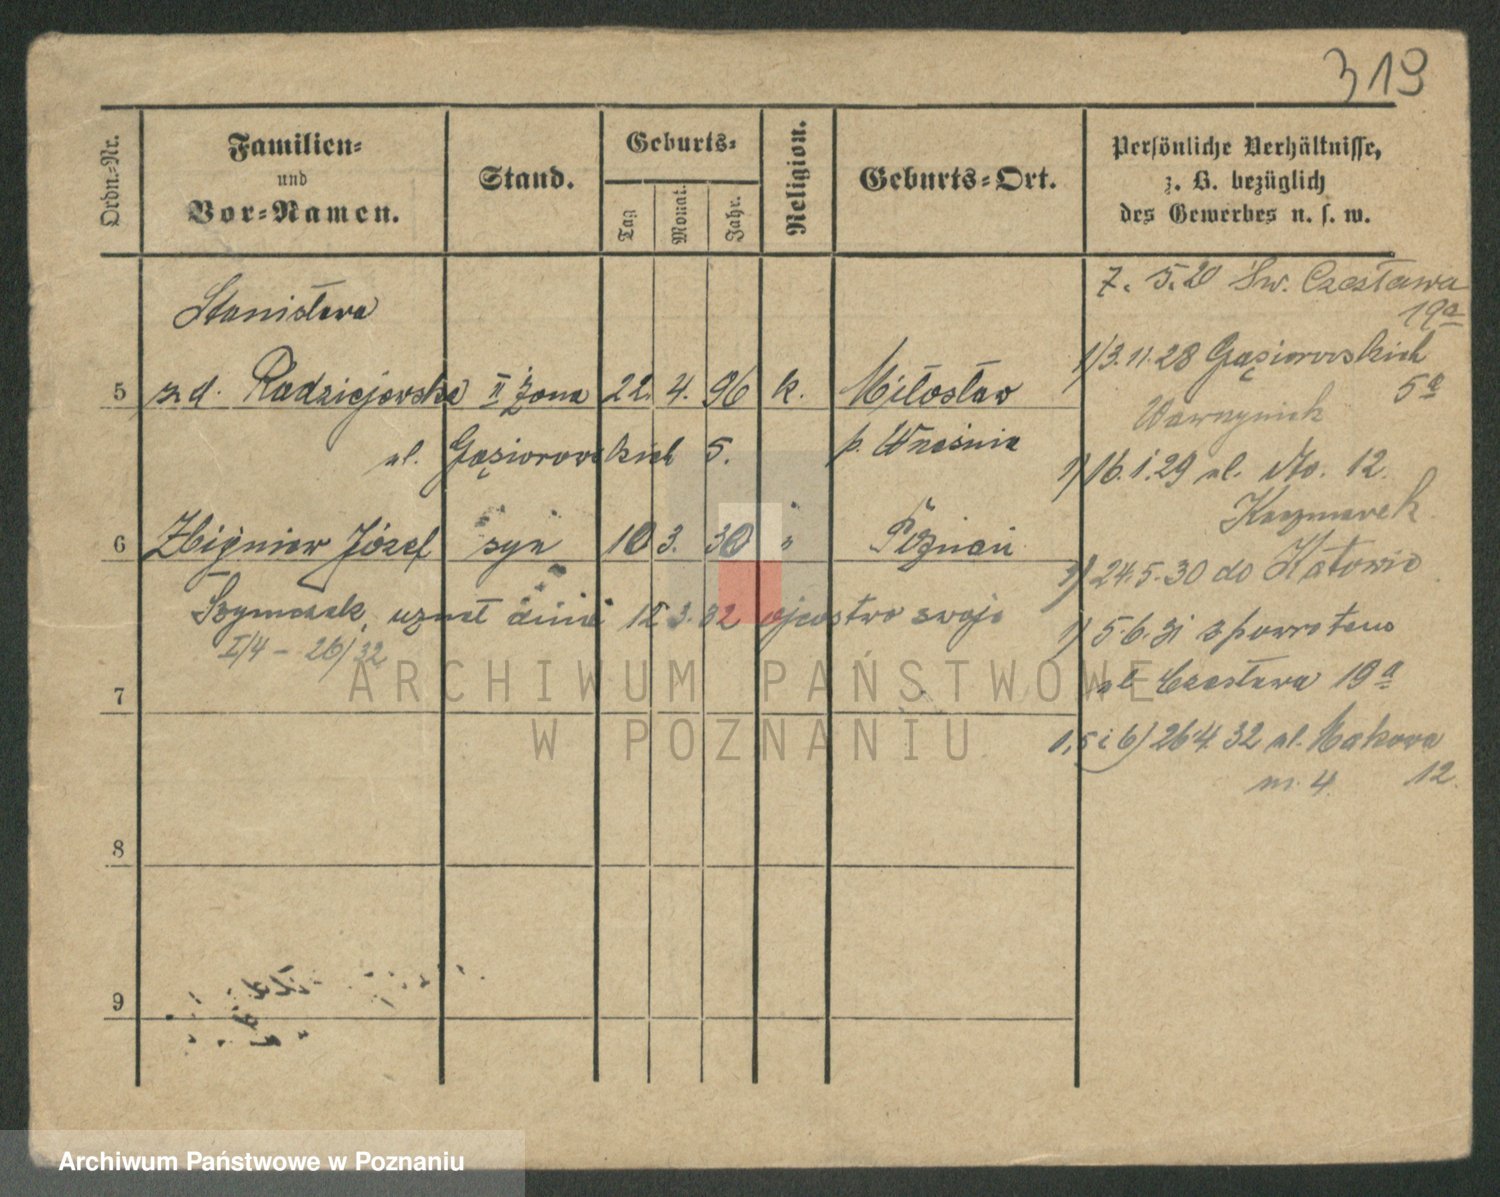 319
Ordn.-Nr.
Familien-
und
Vor-Namen.
Stand.
Geburts-
Tag
Monat.
Jahr.
Religion.
Geburts-Ort.
Persönliche Verhältnisse,
z. B. bezüglich
des Gewerbes u. s. w.
Stanisława
5 z d. Radziejewska II żona 22. 4. 96 k. Miłosław
ul. Gąsiorowskich 5. p. Września
6 Zbigniew Józef syn 10 3. 30 " Poznań
Szymczak, uznał dnia 12 3. 32 ojcostwo swoje
I/4 - 26/32
7
8
9
7. 5. 20 Św. Czesława
19a
1) 3. 11. 28 Gąsiorowskich
5a
Wawrzyniak
1) 16. 1. 29 ul. 12.
Kaczmarek
1) 24. 5. 30 do Katowic
1) 5. 6. 31 z powrotem
ul. Czesława 19a
1, 5 i 6) 26 4. 32 ul. Makowa
m. 4 12.
ARCHIWUM PAŃSTWOWE
W POZNANIU
Archiwum Państwowe w Poznaniu